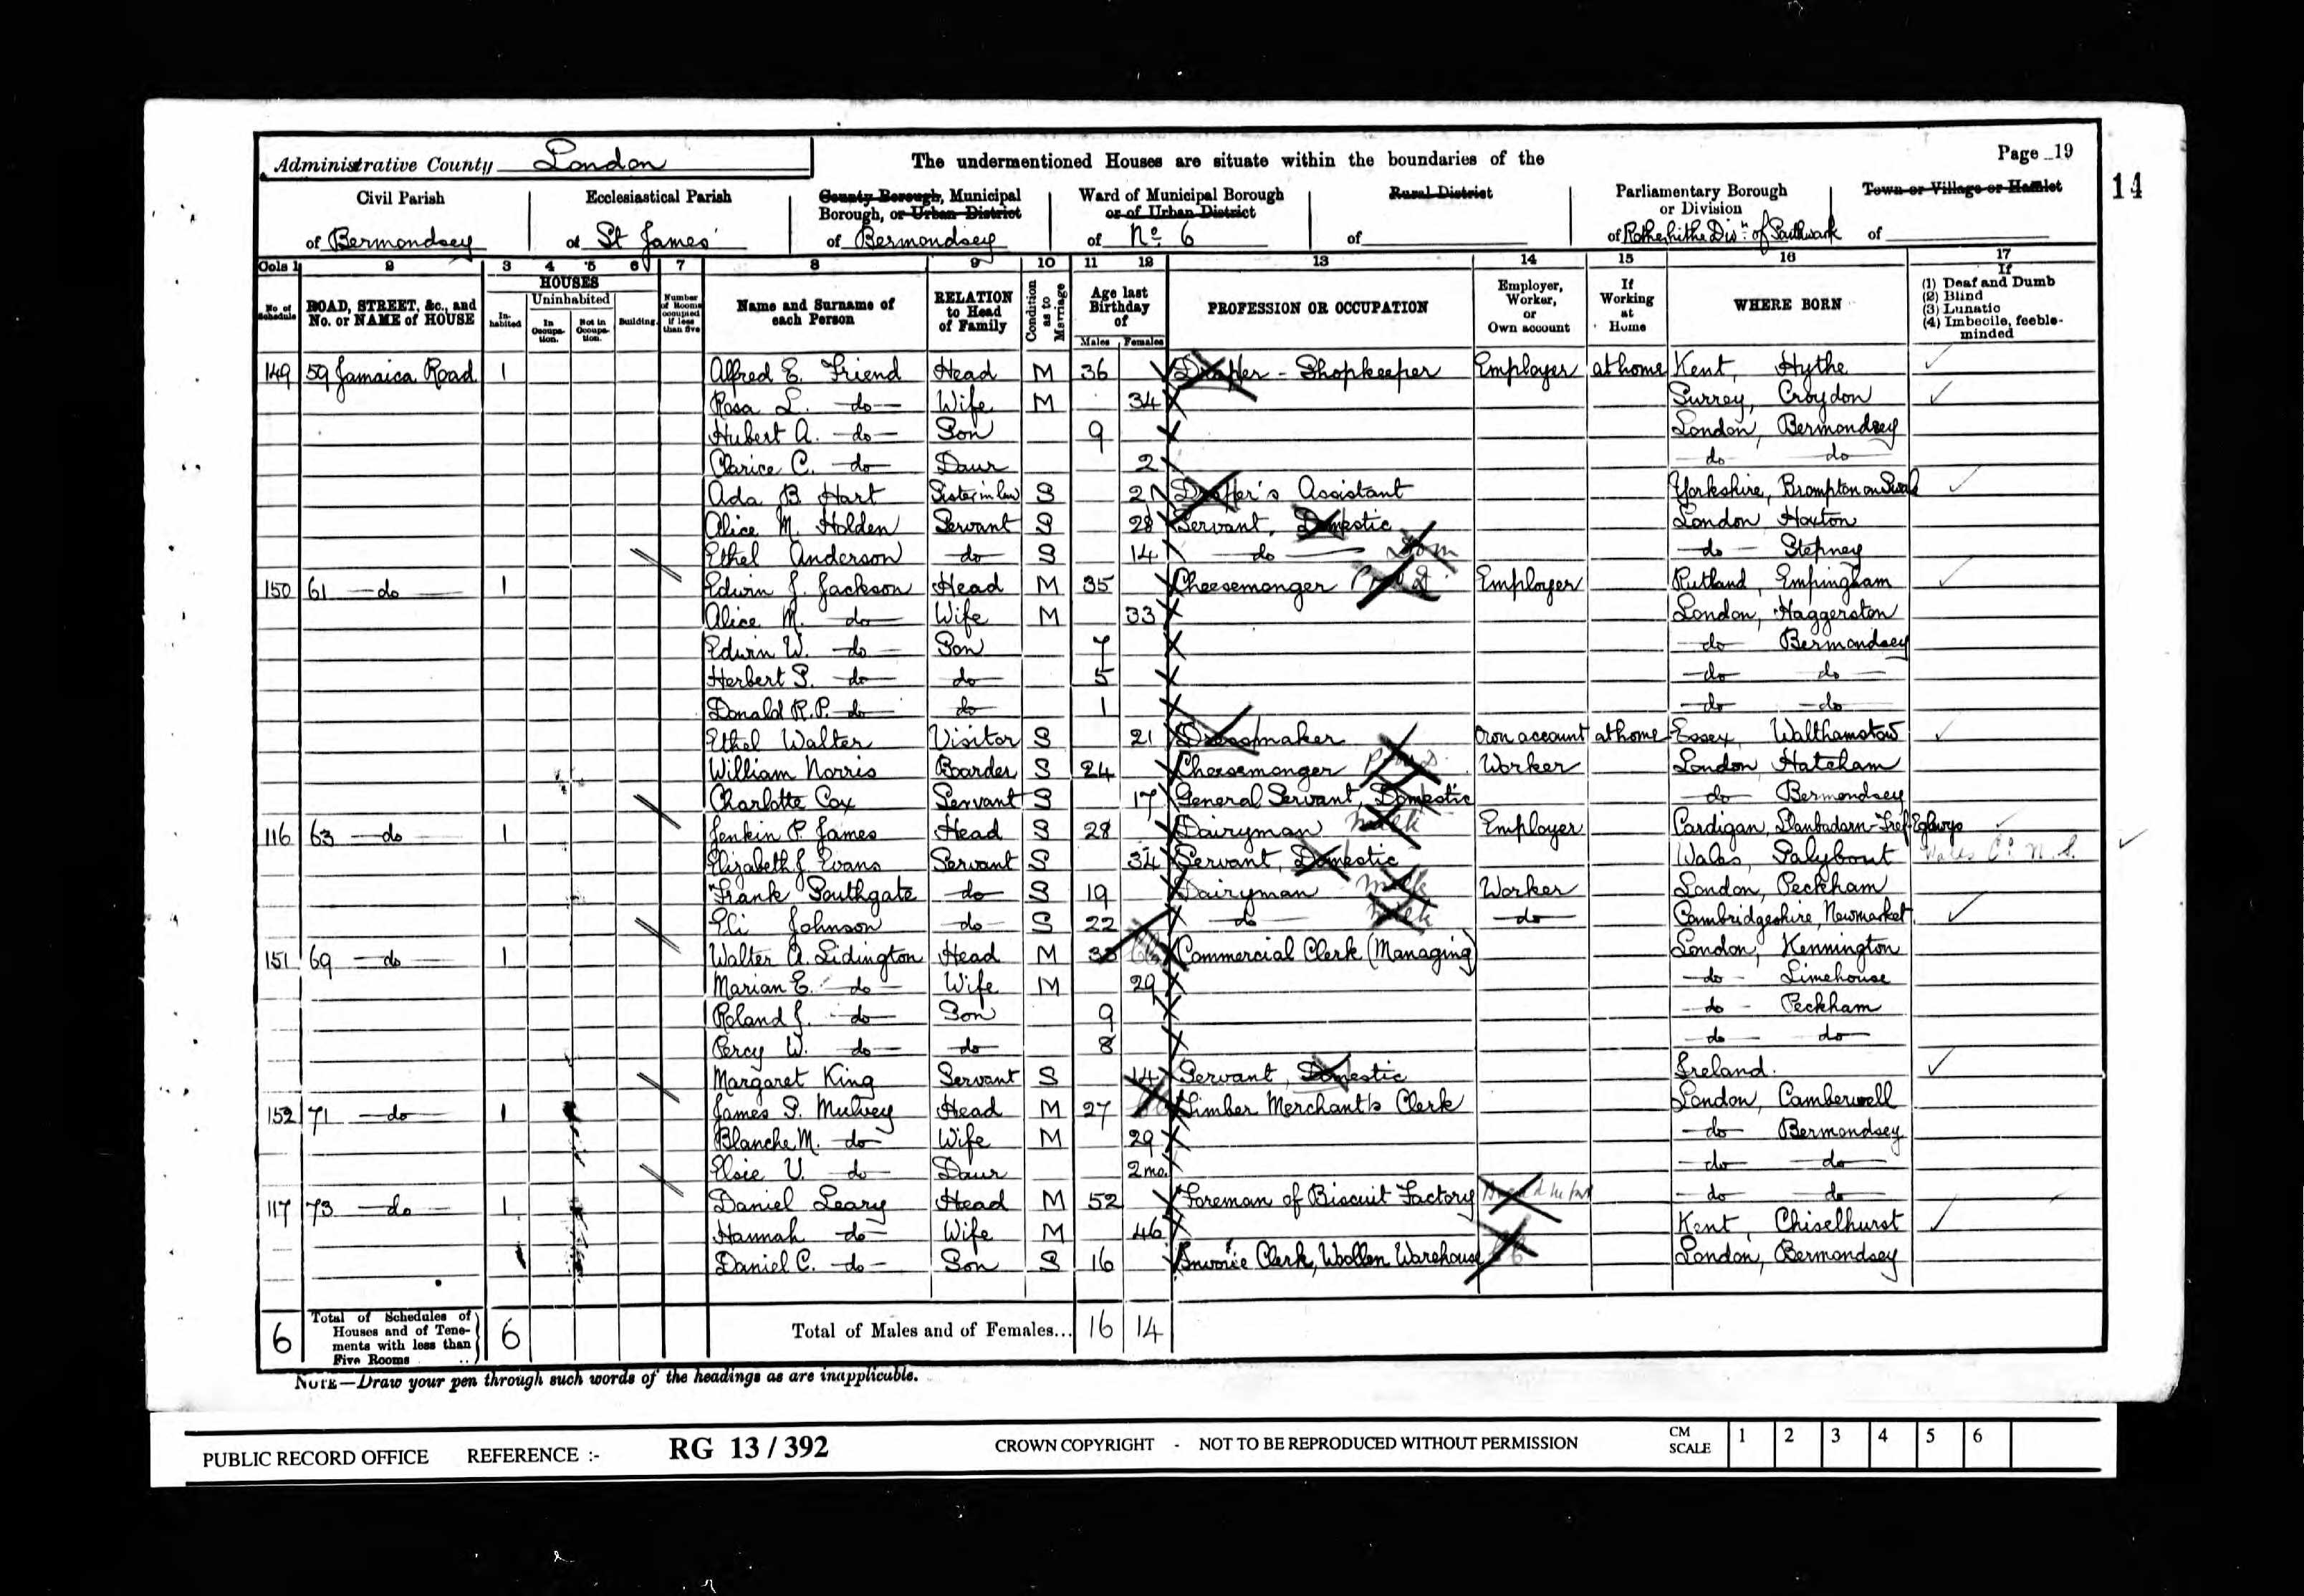 Administrative County London
The undermentioned Houses are situate within the boundaries of the
Page 19
14
Civil Parish of Bermondsey
Ecclesiastical Parish of St James'
County Borough, Municipal Borough, or Urban District of Bermondsey
Ward of Municipal Borough or of Urban District of No. 6
Rural District of
Parliamentary Borough or Division of Rotherhithe Divn. of Southwark
Town or Village or Hamlet of
Cols 1 2 3 4 5 6 7 8 9 10 11 12 13 14 15 16 17
No of Schedule
ROAD, STREET, &c., and No. or NAME of HOUSE
HOUSES
Inhabited
Uninhabited
In Occupation.
Not in Occupation.
Building.
Number of Rooms occupied if less than five
Name and Surname of each Person
RELATION to Head of Family
Condition as to Marriage
Age last Birthday of
Males Females
PROFESSION OR OCCUPATION
Employer, Worker, or Own account
If Working at Home
WHERE BORN
If (1) Deaf and Dumb (2) Blind (3) Lunatic (4) Imbecile, feeble-minded
149 59 Jamaica Road 1 Alfred E. Friend Head M 36 Draper - Shopkeeper Employer at home Kent, Hythe
Rosa L. do Wife M 34 Surrey, Croydon
Hubert A. do Son 9 London, Bermondsey
Clarice C. do Daur 2 do do
Ada B Hart Sister in law S 21 Draper's Assistant Yorkshire, Brompton on
Alice M. Holden Servant S 28 Servant, Domestic London Hoxton
Ethel Anderson do S 14 do Dom do Stepney
150 61 do 1 Edwin J. Jackson Head M 35 Cheesemonger Employer Rutland, Empingham
Alice M. do Wife M 33 London, Haggerston
Edwin W. do Son 7 do Bermondsey
Herbert S. do do 5 do do
Donald R.P. do do 1 do do
Ethel Walter Visitor S 21 Dressmaker Own account at home Essex, Walthamstow
William Norris Boarder S 24 Cheesemonger Worker London Hatcham
Charlotte Cox Servant S 17 General Servant, Domestic do Bermondsey
116 63 do 1 Jenkin P. James Head S 28 Dairyman milk Employer Cardigan, Llanbadarn-Tref-Eglwys
Elizabeth J. Evans Servant S 34 Servant, Domestic Wales, Talybout Wales Co. N.S.
Frank Southgate do S 19 Dairyman milk Worker London, Peckham
Eli Johnson do S 22 do milk do Cambridgeshire, Newmarket
151 69 do 1 Walter A. Lidington Head M Commercial Clerk (Managing) London, Kennington
Marian E. do Wife M 29 do Limehouse
Roland J. do Son 9 do Peckham
Percy W. do do 8 do do
Margaret King Servant S 14 Servant, Domestic Ireland.
152 71 do 1 James S. Mulvey Head M 27 Timber Merchant's Clerk London, Camberwell
Blanche M. do Wife M 29 do Bermondsey
Elsie V. do Daur 2 mo. do do
117 73 do 1 Daniel Leary Head M 52 Foreman of Biscuit Factory do do
Hannah do Wife M 46 Kent, Chiselhurst
Daniel C. do Son S 16 Invoice Clerk, Woollen Warehouse London, Bermondsey
6 Total of Schedules of Houses and of Tenements with less than Five Rooms 6 Total of Males and of Females... 16 14
NOTE—Draw your pen through such words of the headings as are inapplicable.
PUBLIC RECORD OFFICE REFERENCE :- RG 13 / 392 CROWN COPYRIGHT - NOT TO BE REPRODUCED WITHOUT PERMISSION CM SCALE 1 2 3 4 5 6